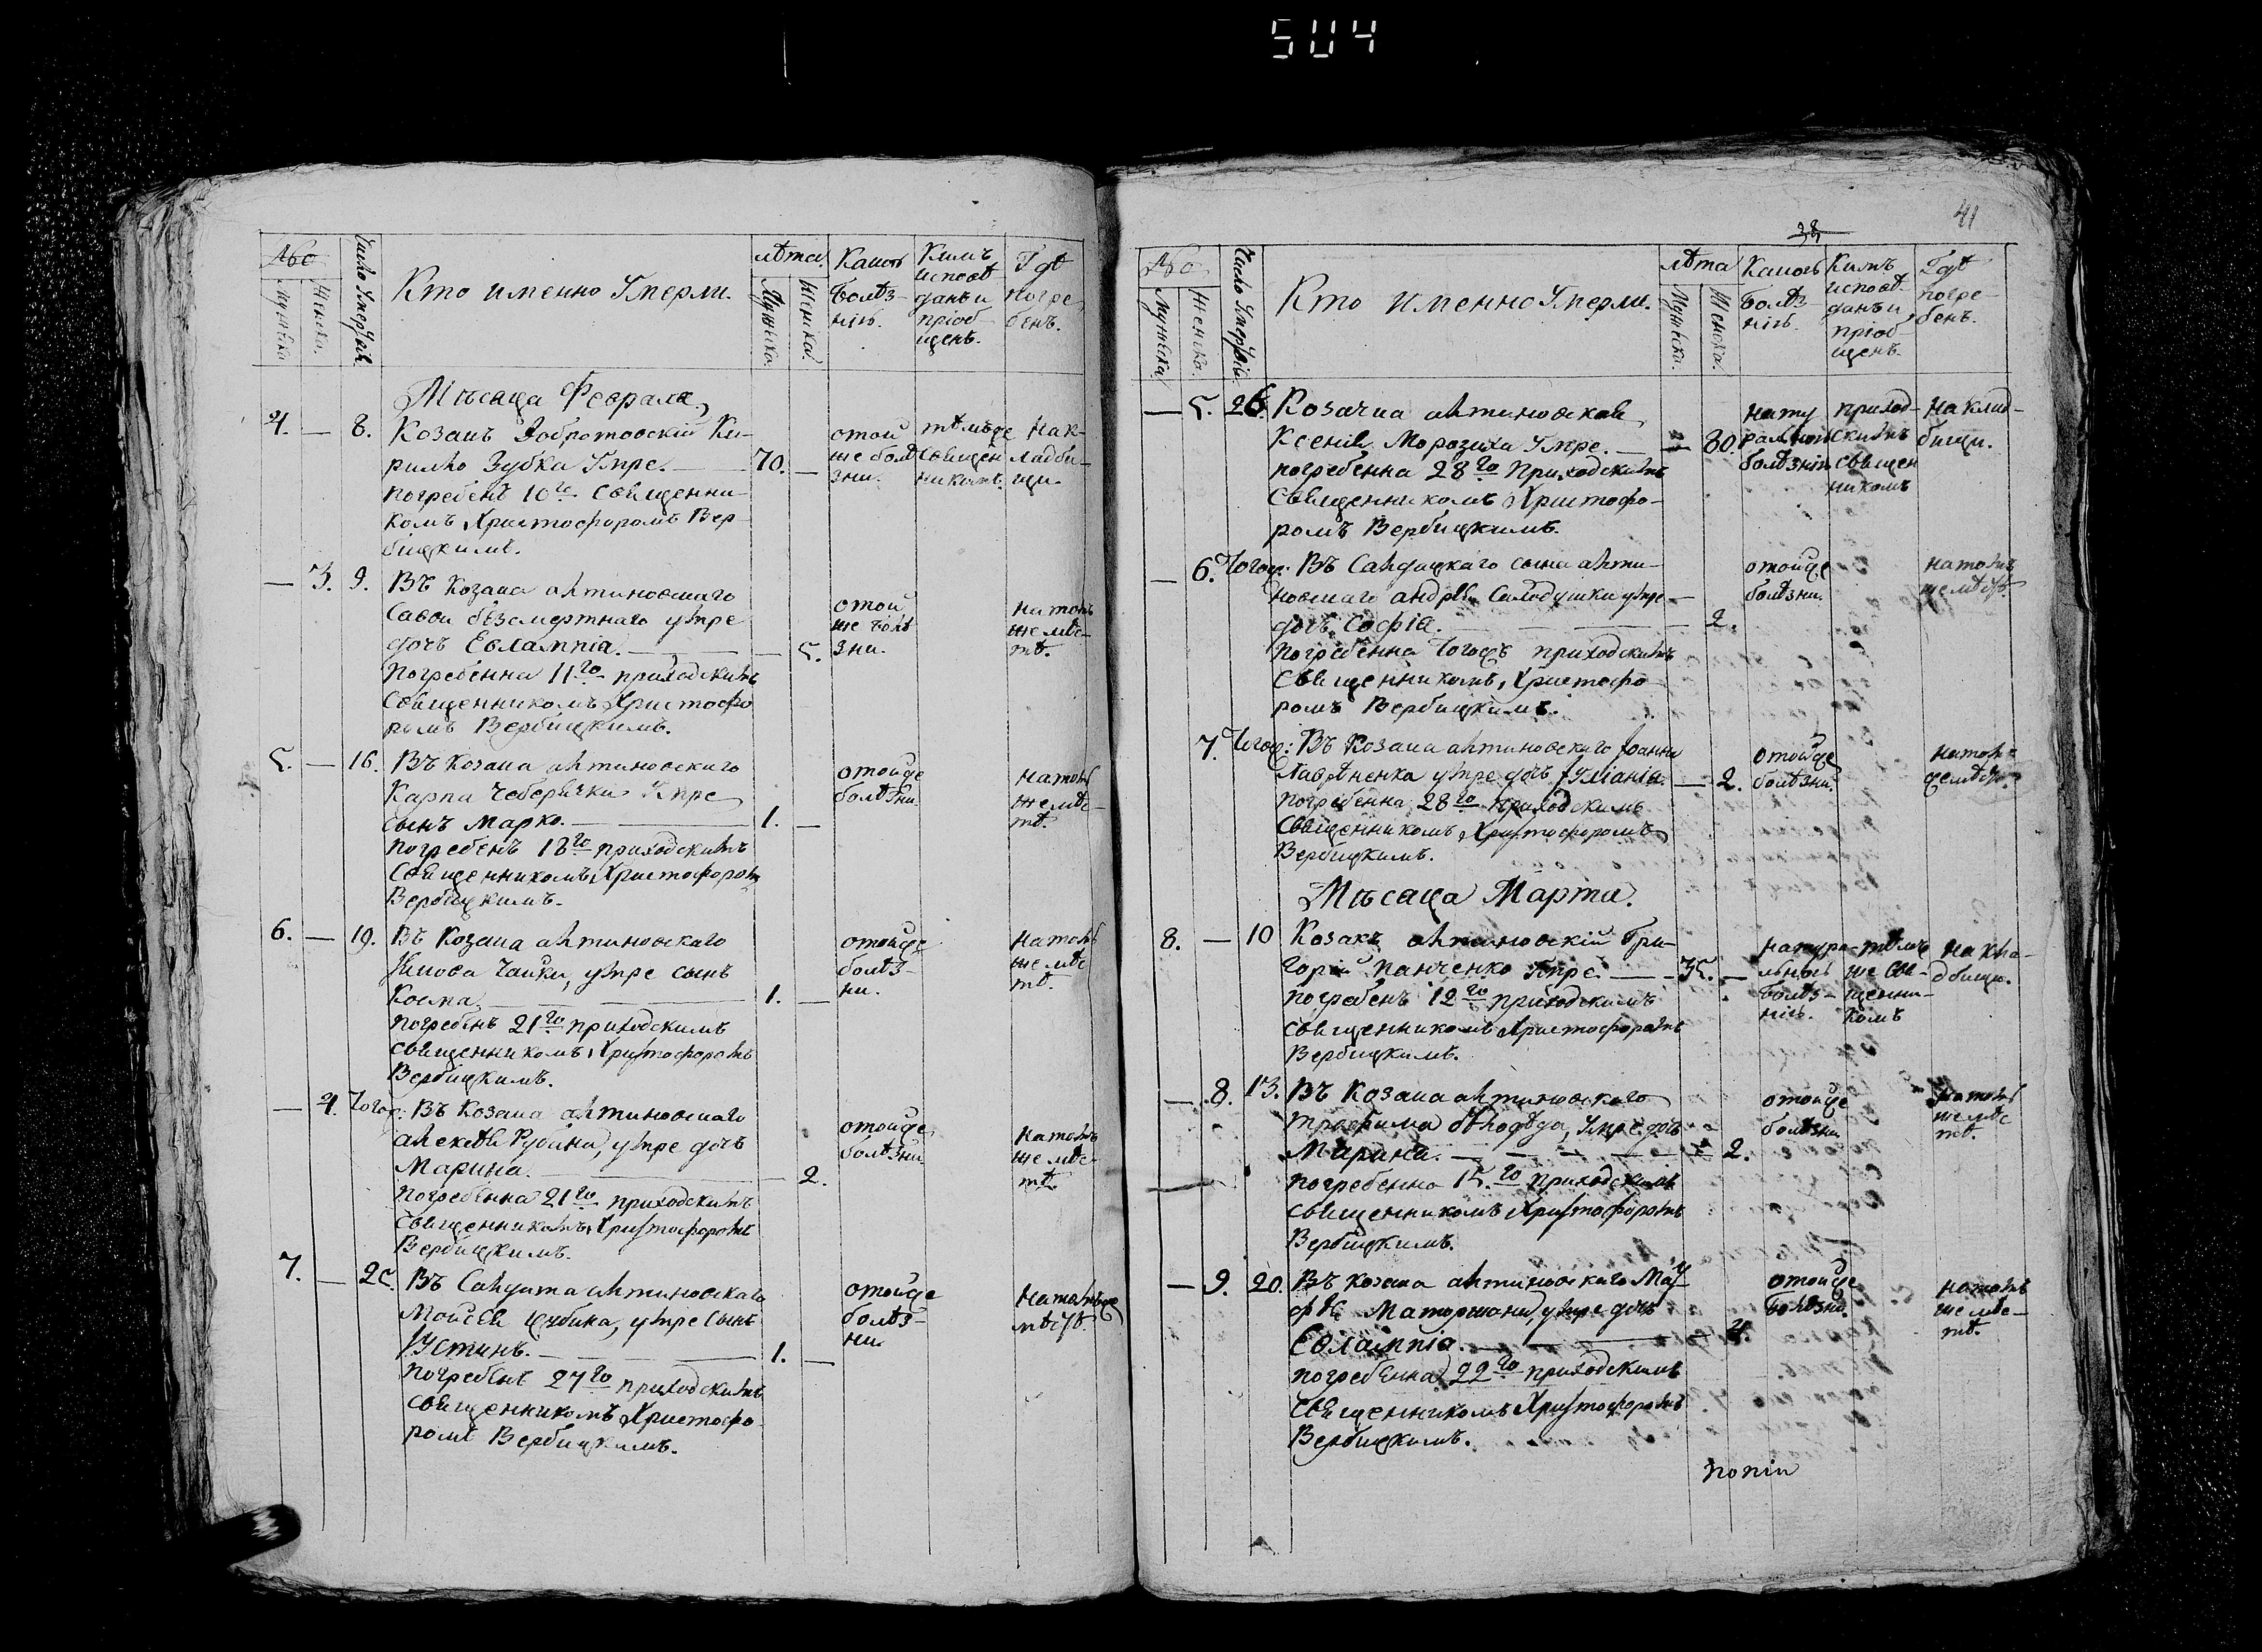 504
№
Мужеска.
Женска.
Число Умерший.
Кто именно Умерли.
лѣта.
Мужска.
Женска.
Какою
болѣз-
нію.
Кимъ
исповѣ
данъ и
пріоб
щенъ.
Гдѣ
погре
бенъ.
Мѣсяца Февраля
4. — 8. Козакъ Добротовскій Ки-
рилло Зубка Умре. — 70. —
погребенъ 10го Священни-
комъ Христофоромъ Вер-
бицкимъ.
отой
же болѣ
зни.
тѣмъже
Священ
никомъ.
На к-
ладби-
щи.
— 3. 9. Въ Козака алтиновскаго
Савви безсмертнаго умре
дочь Евлампіа. — — 5.
погребенна 11го приходскимъ
Священникомъ Христофо
ромъ Вербицкимъ.
отой
же болѣ
зни.
на томъ
же мѣс-
тѣ.
5. — 16. Въ Козака алтиновскаго
Карпа Чеберячки Умре
сынъ Марко. — 1. —
погребенъ 18го приходскимъ
Священникомъ Христофоромъ
Вербицкимъ.
отойже
болѣзни.
на томъ
же мѣс-
тѣ.
6. — 19. Въ Козака алтиновскаго
Іякова Чайки, умре сынъ
Косма. — 1. —
погребенъ 21го приходскимъ
священникомъ Христофоромъ
Вербицкимъ.
отойже
болѣз-
ни.
на томъ
же мѣс
тѣ.
— 4. Тогож: Въ Козака алтиновскаго
алексѣя Рубана, умре дочь
Марина. — — 2.
погребенна 21го приходскимъ
священникомъ Христофоромъ
Вербицкимъ.
отойже
болѣзни.
на томъ
же мѣс-
тѣ.
7. — 25. Въ Салдата алтиновскаго
Мойсея Цибика, умре Сынъ
Устинъ. — 1. —
погребенъ 27го приходскимъ
священникомъ Христофо
ромъ Вербицкимъ.
отойже
болѣз-
ни.
на томъже
мѣстѣ.
38
41
№
Мужеска.
Женска.
Число Умерший.
Кто именно Умерли.
лѣта
Мужеска.
Женска.
Какою
болѣз-
нію.
Кимъ
исповѣ
данъ и
пріоб
щенъ.
Гдѣ
погре-
бенъ.
— 5. 26. Козачка алтиновская
Ксенія Морозиха Умре. — — 80.
погребенна 28го Приходскимъ
Священникомъ Христофо-
ромъ Вербицкимъ.
нату
ральною
болѣзнію
приход-
скимъ
священ
никомъ
На клад-
бищи.
— 6. Тогож: Въ Салдацкаго сына алти-
новскаго андрея Солодушки умре —
дочь Софіа. — — 2.
погребенна Тогожъ приходскимъ
Священникомъ Христофо
ромъ Вербицкимъ.
отойже
болѣзни.
на томъ
же мѣстѣ.
7. Тогож: Въ Козака алтиновскаго Іоанна
Лавриненка умре дочь Уліаніа. — 2.
погребенна 28го приходскимъ
Священникомъ Христофоромъ
Вербицкимъ.
отойже
болѣзни.
на томъ-
же мѣстѣ.
Мѣсяца Марта.
8. — 10 Козакъ алтиновскій Гри-
горій Панченко Умре — 35. —
погребенъ 12го приходскимъ
священникомъ Христофоромъ
Вербицкимъ.
натура-
льною
болѣз-
нію.
тѣмъ
же Свя-
щенни-
комъ
на кла-
дбищѣ.
— 8. 13. Въ Козака алтиновскаго
Трофима Умре дочь
Марина. — 2.
погребенна 15.го приходскимъ
священникомъ Христофоромъ
Вербицкимъ.
отойже
болѣзни
на томъ
же мѣс
тѣ.
— 9. 20. Въ козака алтиновскаго Мат-
фѣя умре дочь
Евлампіа. — 4.
погребенна 22го приходскимъ
священникомъ Христофоромъ
Вербицкимъ.
отойже
болѣзни.
на томъ
же мѣс-
тѣ.